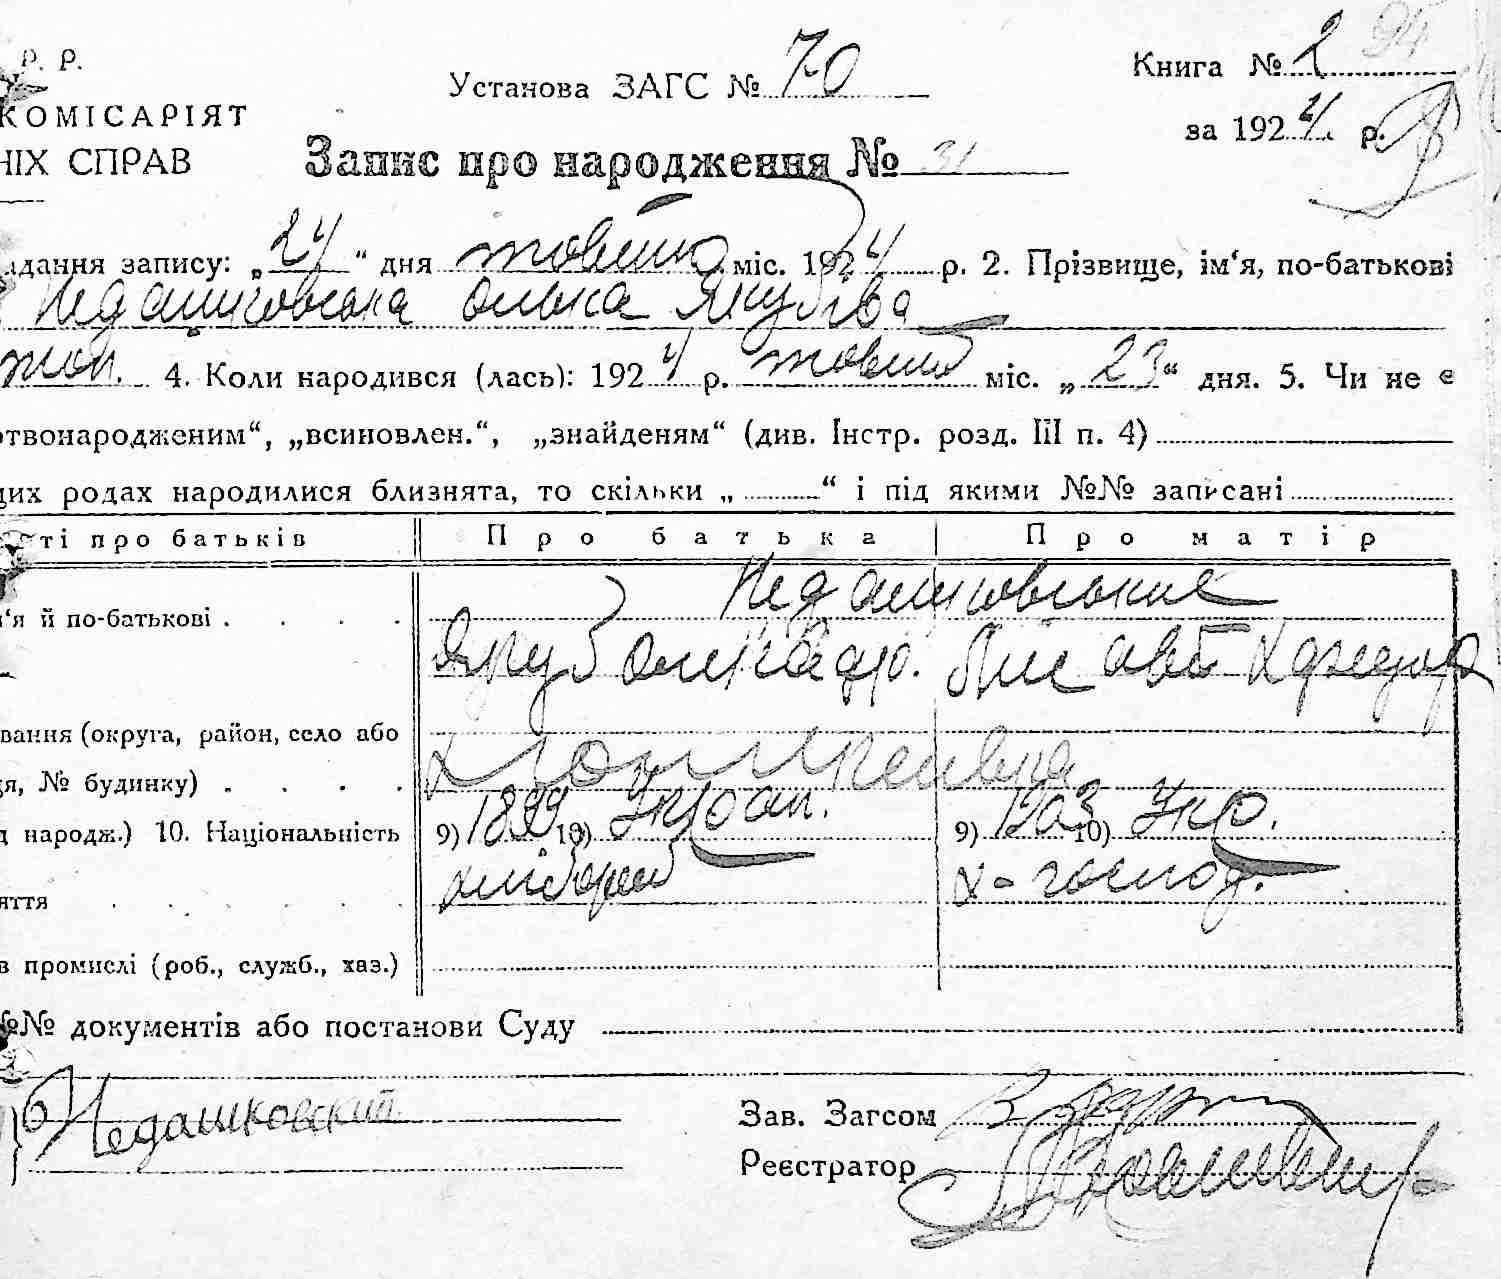 Р. Р.
Установа ЗАГС № 70
Книга № 2
КОМІСАРІЯТ
за 1924 р.
НІХ СПРАВ
Запис про народження № 31
дання запису: „24“ дня жовтня міс. 1924 р. 2. Прізвище, ім‘я, по-батькові
Недашковська Олька Якубівна
жон. 4. Коли народився (лась): 1924 р. жовтня міс. „23“ дня. 5. Чи не є
отвонародженим“, „всиновлен.“, „знайденям“ (див. Інстр. розд. III п. 4)
цих родах народилися близнята, то скільки „ “ і під якими №№ записані
ті про батьків Про батька Про матір
Недашковські
‘я й по-батькові
Якуб
вання (округа, район, село або
я, № будинку)
д народж.) 10. Національність 9) 1899 10) Украп. 9) 1903 10) Укр.
яття хлібороб х-господ.
в промислі (роб., служб., хаз.)
№№ документів або постанови Суду
Недашковский
Зав. Загсом
Реєстратор